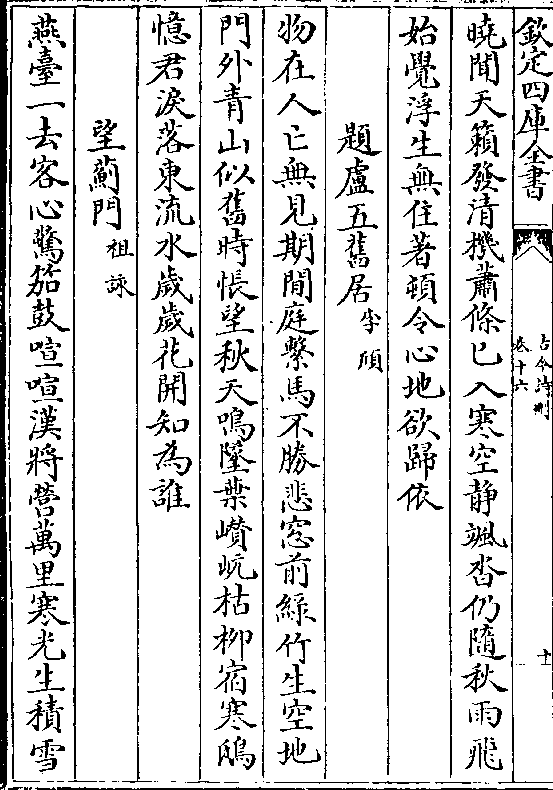 欽定四庫全書
古今詩刪
卷十六
十
曉聞天籟發清機蕭條已入寒空静颯沓仍隨秋雨飛
始覺浮生無住著頓令心地欲歸依
題盧五舊居李頎
物在人亡無見期閒庭繫馬不勝悲窓前緑竹生空地
門外青山似舊時悵望秋天鳴墜葉巑岏枯栁宿寒鴟
憶君淚落東流水歲歲花開知為誰
望薊門祖詠
燕臺一去客心驚笳鼓喧喧漢將營萬里寒光生積雪